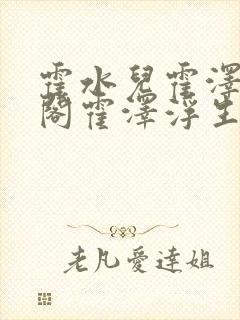 霍水兒霍澤
閣霍澤浮生
老凡愛達姐